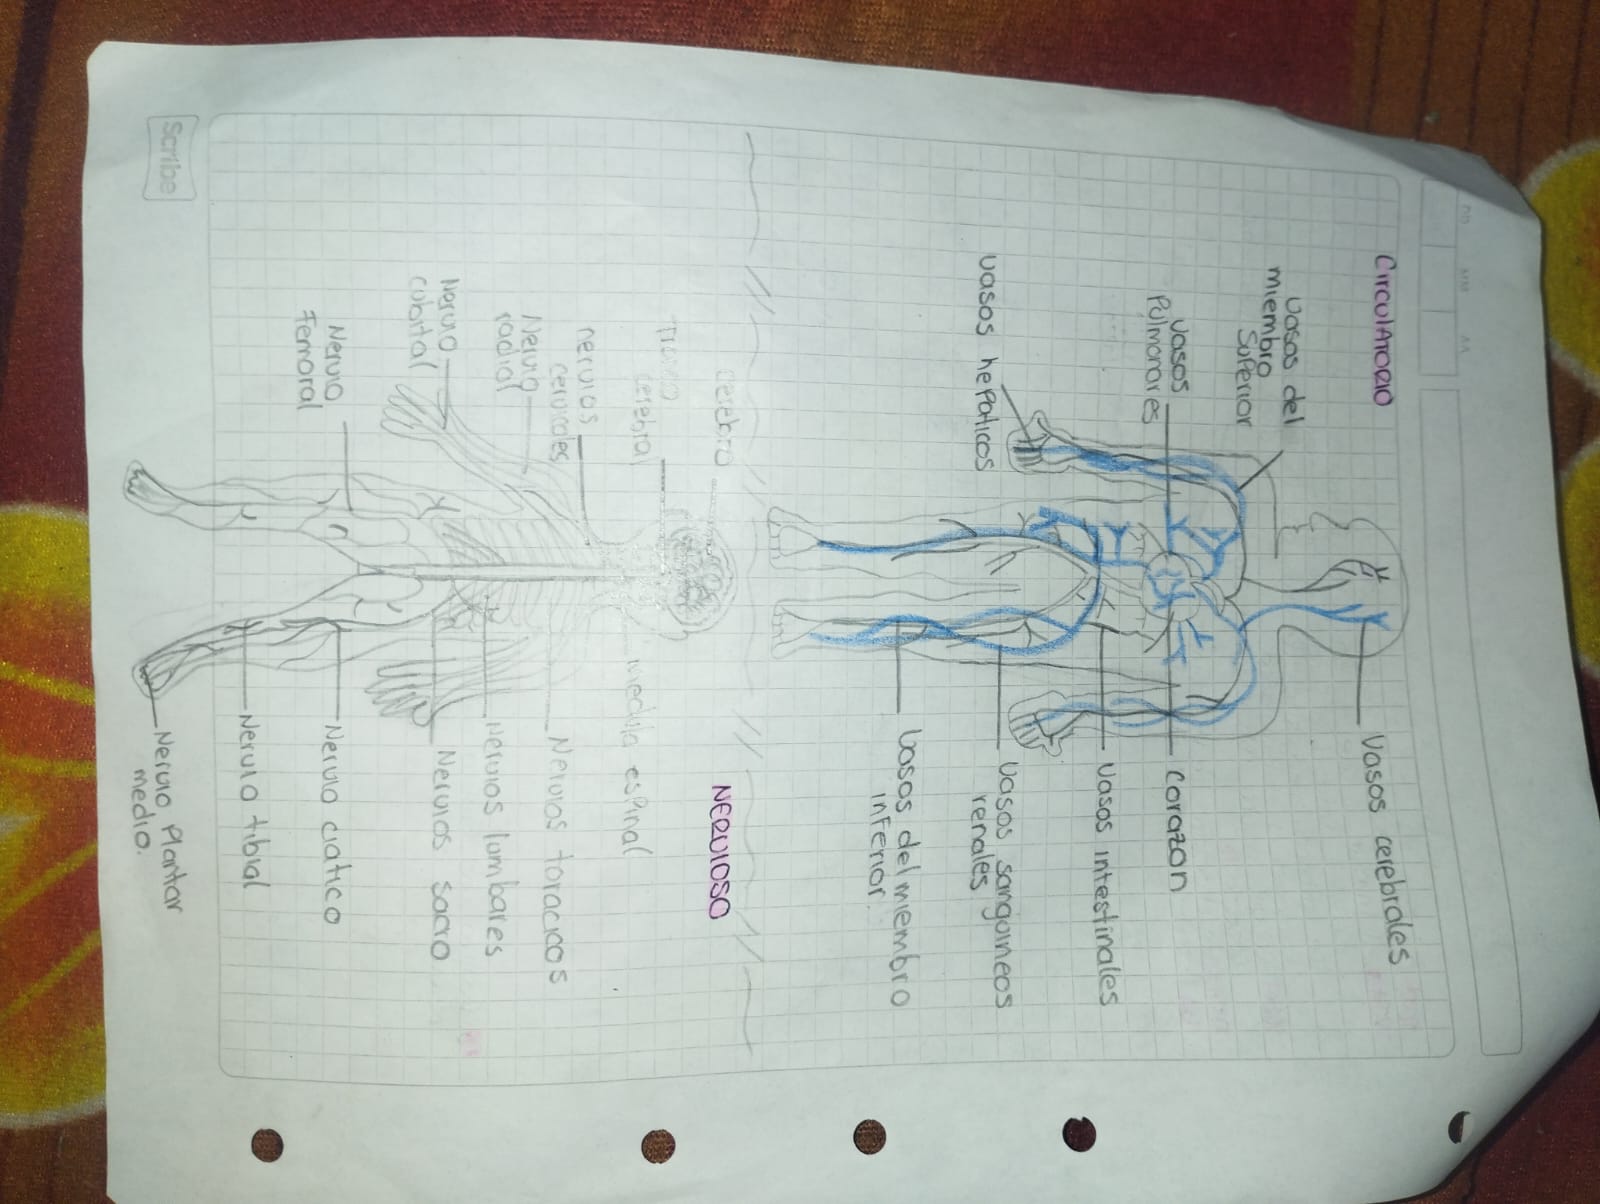 CirculATORIO
Vasos cerebrales
Vasos del
miembro
Superior
Vasos
Pulmonares
Corazon
Vasos intestinales
Vasos hepaticos
Vasos sanguineos
renales
Vasos del miembro
inferior.
NERVIOSO
cerebro
Tronco
cerebral
medula espinal
nervios
cervicales
Nervios toracicos
Nervio
radial
Nervios lumbares
Nervio
cubital
Nervios sacro
Nervio
Femoral
Nervio ciatico
Nervio tibial
Nervio Plantar
medio.
Scribe
DD MM AA